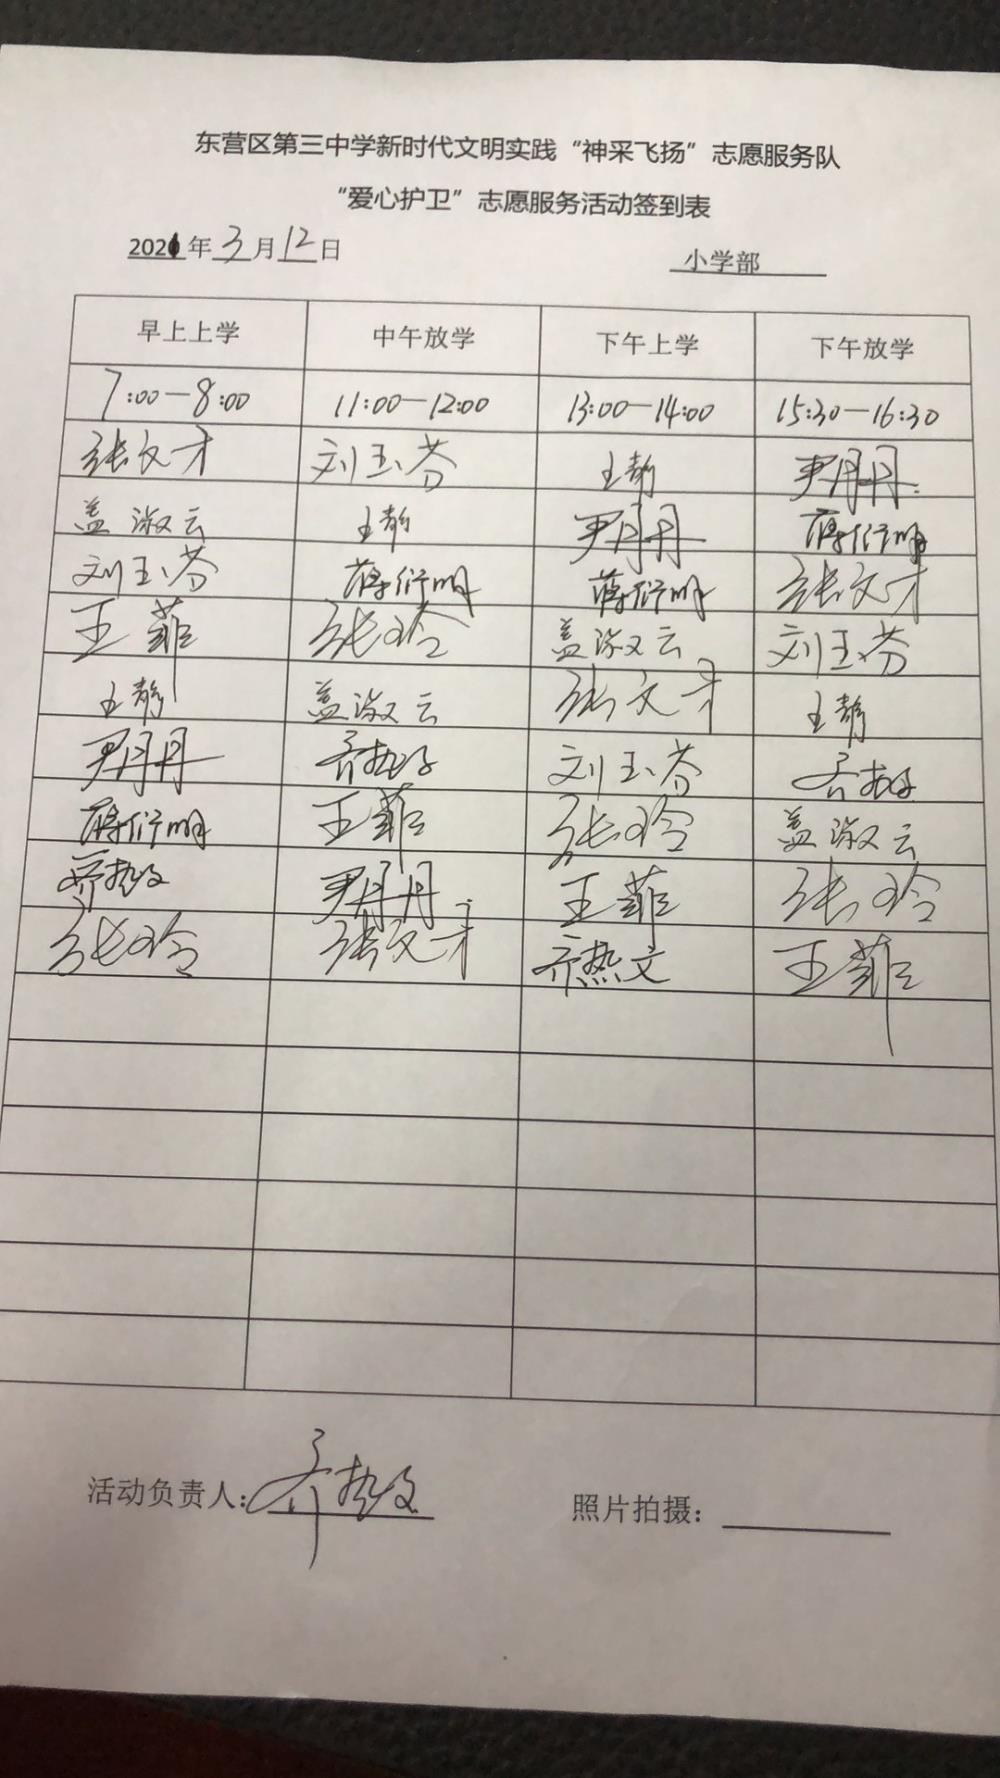 东营区第三中学新时代文明实践“神采飞扬”志愿服务队
“爱心护卫”志愿服务活动签到表
2021年 3月12日 小学部
早上上学 中午放学 下午上学 下午放学
7:00—8:00 11:00—12:00 13:00—14:00 15:30—16:30
张文才 刘玉芬 王静 尹丹丹
盖淑云 王静 尹丹丹 蒋衍明
刘玉芬 蒋衍明 蒋衍明 张文才
王菲 张玲 盖淑云 刘玉芬
王静 盖淑云 张文才 王静
尹丹丹 齐热文 刘玉芬 齐热文
蒋衍明 王菲 张玲 盖淑云
齐热文 尹丹丹 王菲 张玲
张玲 张文才 齐热文 王菲
活动负责人：齐热文 照片拍摄：